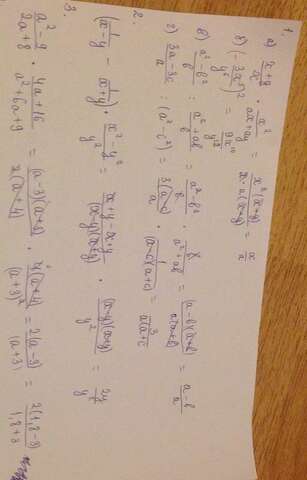 1.
а) \frac{x+y}{x} \cdot \frac{x^2}{ax+ay} = \frac{x^2(x+y)}{x \cdot a(x+y)} = \frac{x}{a}
б) \left(-\frac{3x^5}{y^6}\right)^2 = \frac{9x^{10}}{y^{12}}
в) \frac{a^2-b^2}{b} : \frac{a^2+ab}{b} = \frac{a^2-b^2}{b} \cdot \frac{b}{a^2+ab} = \frac{(a-b)(a+b)}{a(a+b)} = \frac{a-b}{a}
г) \frac{3a-3c}{a} : (a^2-c^2) = \frac{3(a-c)}{a} \cdot \frac{1}{(a-c)(a+c)} = \frac{3}{a(a+c)}
2.
\left(\frac{1}{x-y} - \frac{1}{x+y}\right) \cdot \frac{x^2-y^2}{y^2} = \frac{x+y-x+y}{(x-y)(x+y)} \cdot \frac{(x-y)(x+y)}{y^2} = \frac{2y}{y^2}
3.
\frac{a^2-9}{2a+8} \cdot \frac{4a+16}{a^2+6a+9} = \frac{(a-3)(a+3)}{2(a+4)} \cdot \frac{4(a+4)}{(a+3)^2} = \frac{2(a-3)}{(a+3)} = \frac{2(1,8-3)}{1,8+3}